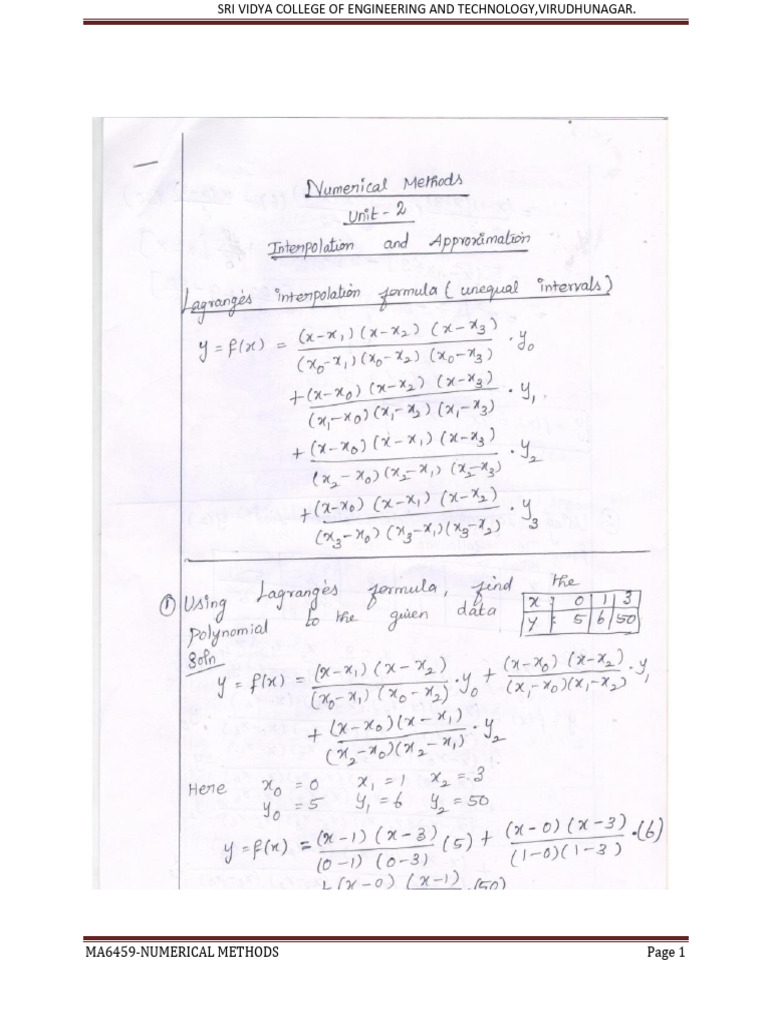 SRI VIDYA COLLEGE OF ENGINEERING AND TECHNOLOGY,VIRUDHUNAGAR.
Numerical Methods
Unit-2
Interpolation and Approximation
Lagrange's interpolation formula (unequal intervals)
y = f(x) = (x-x₁)(x-x₂)(x-x₃)/(x₀-x₁)(x₀-x₂)(x₀-x₃) · y₀
+ (x-x₀)(x-x₂)(x-x₃)/(x₁-x₀)(x₁-x₂)(x₁-x₃) · y₁
+ (x-x₀)(x-x₁)(x-x₃)/(x₂-x₀)(x₂-x₁)(x₂-x₃) · y₂
+ (x-x₀)(x-x₁)(x-x₂)/(x₃-x₀)(x₃-x₁)(x₃-x₂) · y₃
① Using Lagrange's formula, find the
Polynomial to the given data
x : 0 1 3
y : 5 6 50
Soln
y = f(x) = (x-x₁)(x-x₂)/(x₀-x₁)(x₀-x₂) · y₀ + (x-x₀)(x-x₂)/(x₁-x₀)(x₁-x₂) · y₁
+ (x-x₀)(x-x₁)/(x₂-x₀)(x₂-x₁) · y₂
Here x₀ = 0 x₁ = 1 x₂ = 3
y₀ = 5 y₁ = 6 y₂ = 50
y = f(x) = (x-1)(x-3)/(0-1)(0-3) (5) + (x-0)(x-3)/(1-0)(1-3) · (6)
+ (x-0)(x-1) (50)
MA6459-NUMERICAL METHODS
Page 1